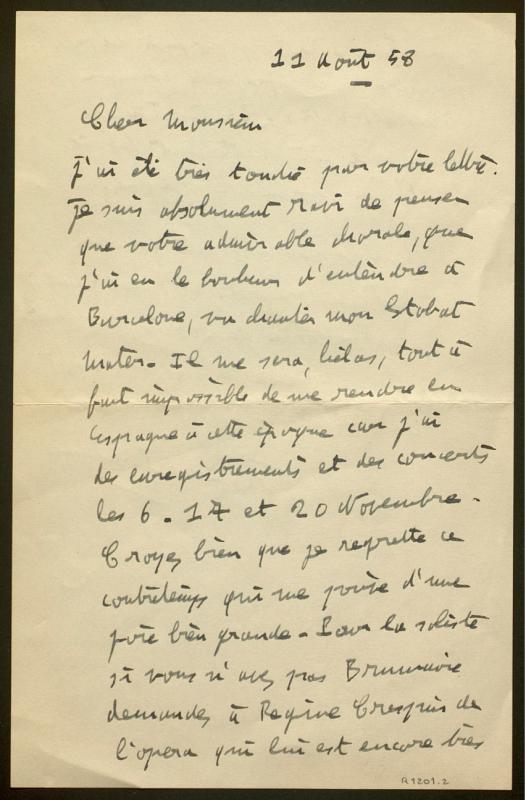 11 Août 58
Cher Monsieur
J'ai été très touché par votre lettre.
Je suis absolument ravi de penser
que votre admirable chorale, que
j'ai eu le bonheur d'entendre à
Barcelone, va chanter mon Stabat
Mater. Il me sera, hélas, tout à
fait impossible de me rendre en
Espagne à cette époque car j'ai
des enregistrements et des concerts
les 6. 17 et 20 Novembre.
Croyez bien que je regrette ce
contretemps qui me prive d'une
joie bien grande. Pour la soliste
si vous n'avez pas Brumaire
demandez à Regine Crespin de
l'opera qui est encore très
R 1201.2